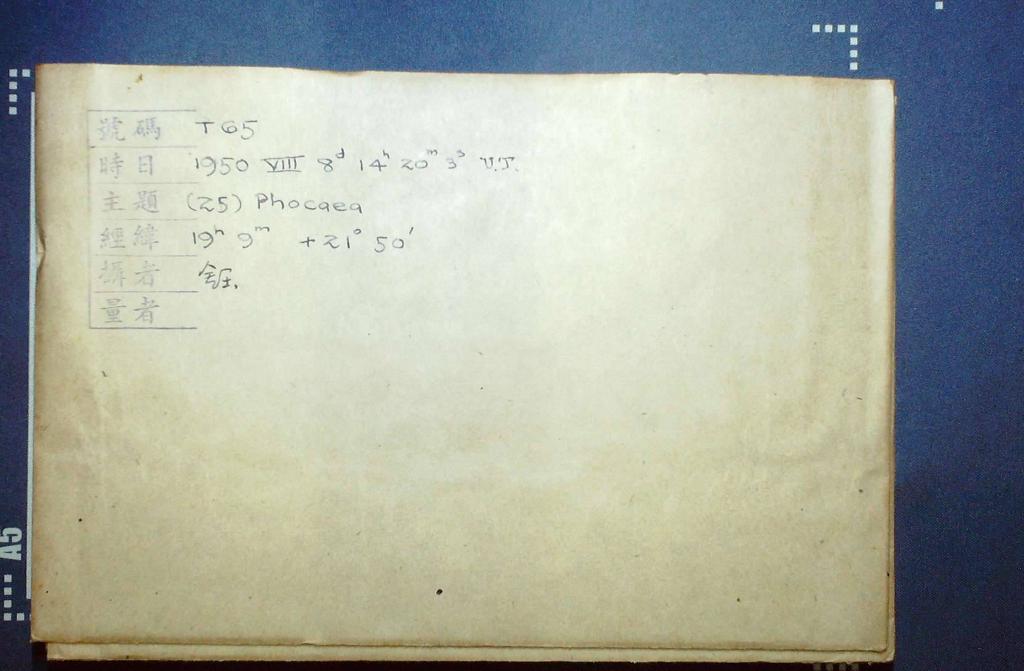 號碼 T65
時日 1950 VIII 8ᵈ 14ʰ 20ᵐ 3ˢ U.T.
主題 (25) Phocaea
經緯 19ʰ 9ᵐ +21° 50'
攝者
量者
A5